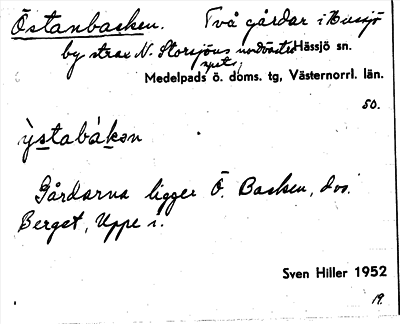 Östanbacken. Två gårdar i Husjö
by strax N. Storsjöns nordöstra Hässjö sn.
spets,
Medelpads ö. doms. tg, Västernorrl. län.
50.
ỳstabákan
Gårdarna ligger Ö. Backen, dvs.
Berget, Uppe i.
Sven Hiller 1952
19.